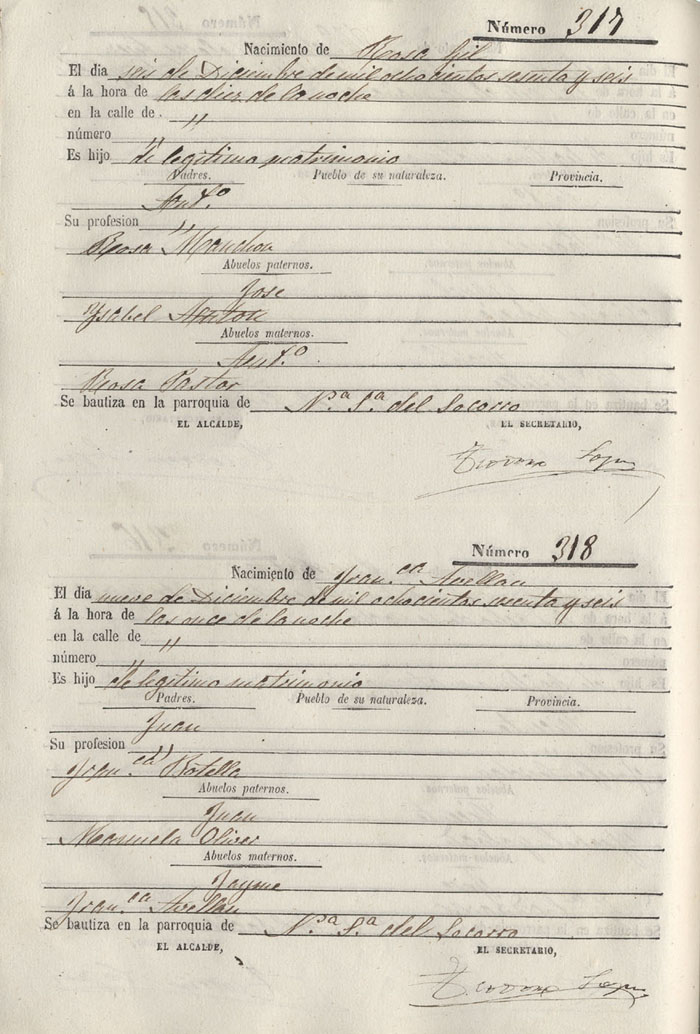 Número 317
Nacimiento de Rosa Gil
El dia seis de Diciembre de mil ochocientos sesenta y seis
á la hora de las diez de la noche
en la calle de "
número "
Es hijo de legitimo matrimonio
Padres. Pueblo de su naturaleza. Provincia.
Ant.º
Su profesion "
Rosa Manchon
Abuelos paternos.
Jose
Ysabel
Abuelos maternos.
Ant.º
Rosa Pastor
Se bautiza en la parroquia de N.ª S.ª del Socorro
EL ALCALDE, EL SECRETARIO,
Número 318
Nacimiento de Fran.ca Avellan
El dia nueve de Diciembre de mil ochocientos sesenta y seis
á la hora de las once de la noche
en la calle de "
número "
Es hijo de legitimo matrimonio
Padres. Pueblo de su naturaleza. Provincia.
Juan
Su profesion "
Fran.ca Botella
Abuelos paternos.
Juan
Manuela Oliver
Abuelos maternos.
Jayme
Fran.ca Avellan
Se bautiza en la parroquia de N.ª S.ª del Socorro
EL ALCALDE, EL SECRETARIO,